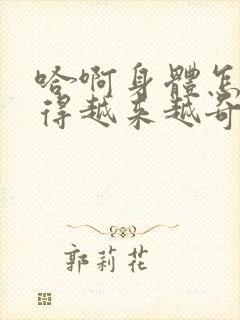 哈啊身體怎
得越来越奇
郭莉花